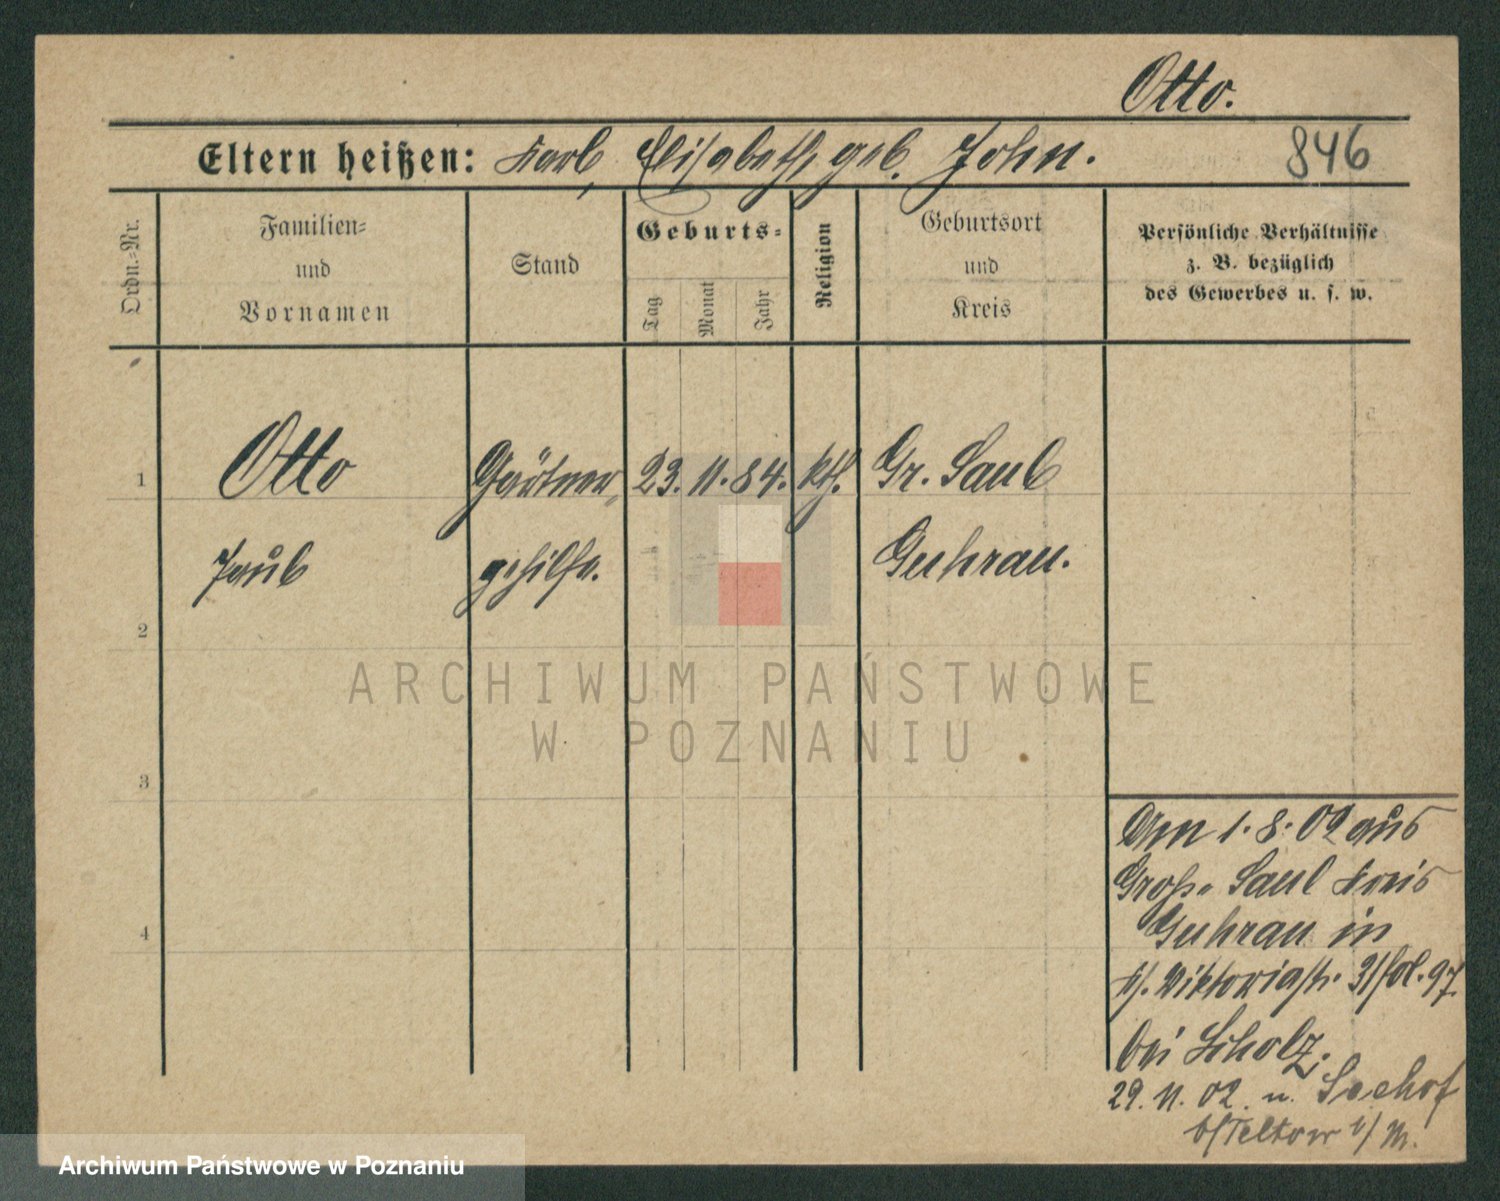 Otto.
Eltern heißen: Karl, Elisabeth, geb. John.
846
Ordn.-Nr.
Familien-
und
Vornamen
Stand
Geburts-
Tag
Monat
Jahr
Religion
Geburtsort
und
Kreis
Persönliche Verhältnisse
z. B. bezüglich
des Gewerbes u. s. w.
1
Otto
Gärtner„
23. 11. 84.
kth.
Gr. Saul
gehilfe.
Guhrau.
2
3
4
Am 1. 8. 02 aus
Groß„ Saul Kreis
Guhrau in
Viktoriastr. 31 fol. 97.
bei Scholz.
29. 11. 02. n. Seehof
b/Teltow i/M.
ARCHIWUM PAŃSTWOWE
W POZNANIU
Archiwum Państwowe w Poznaniu